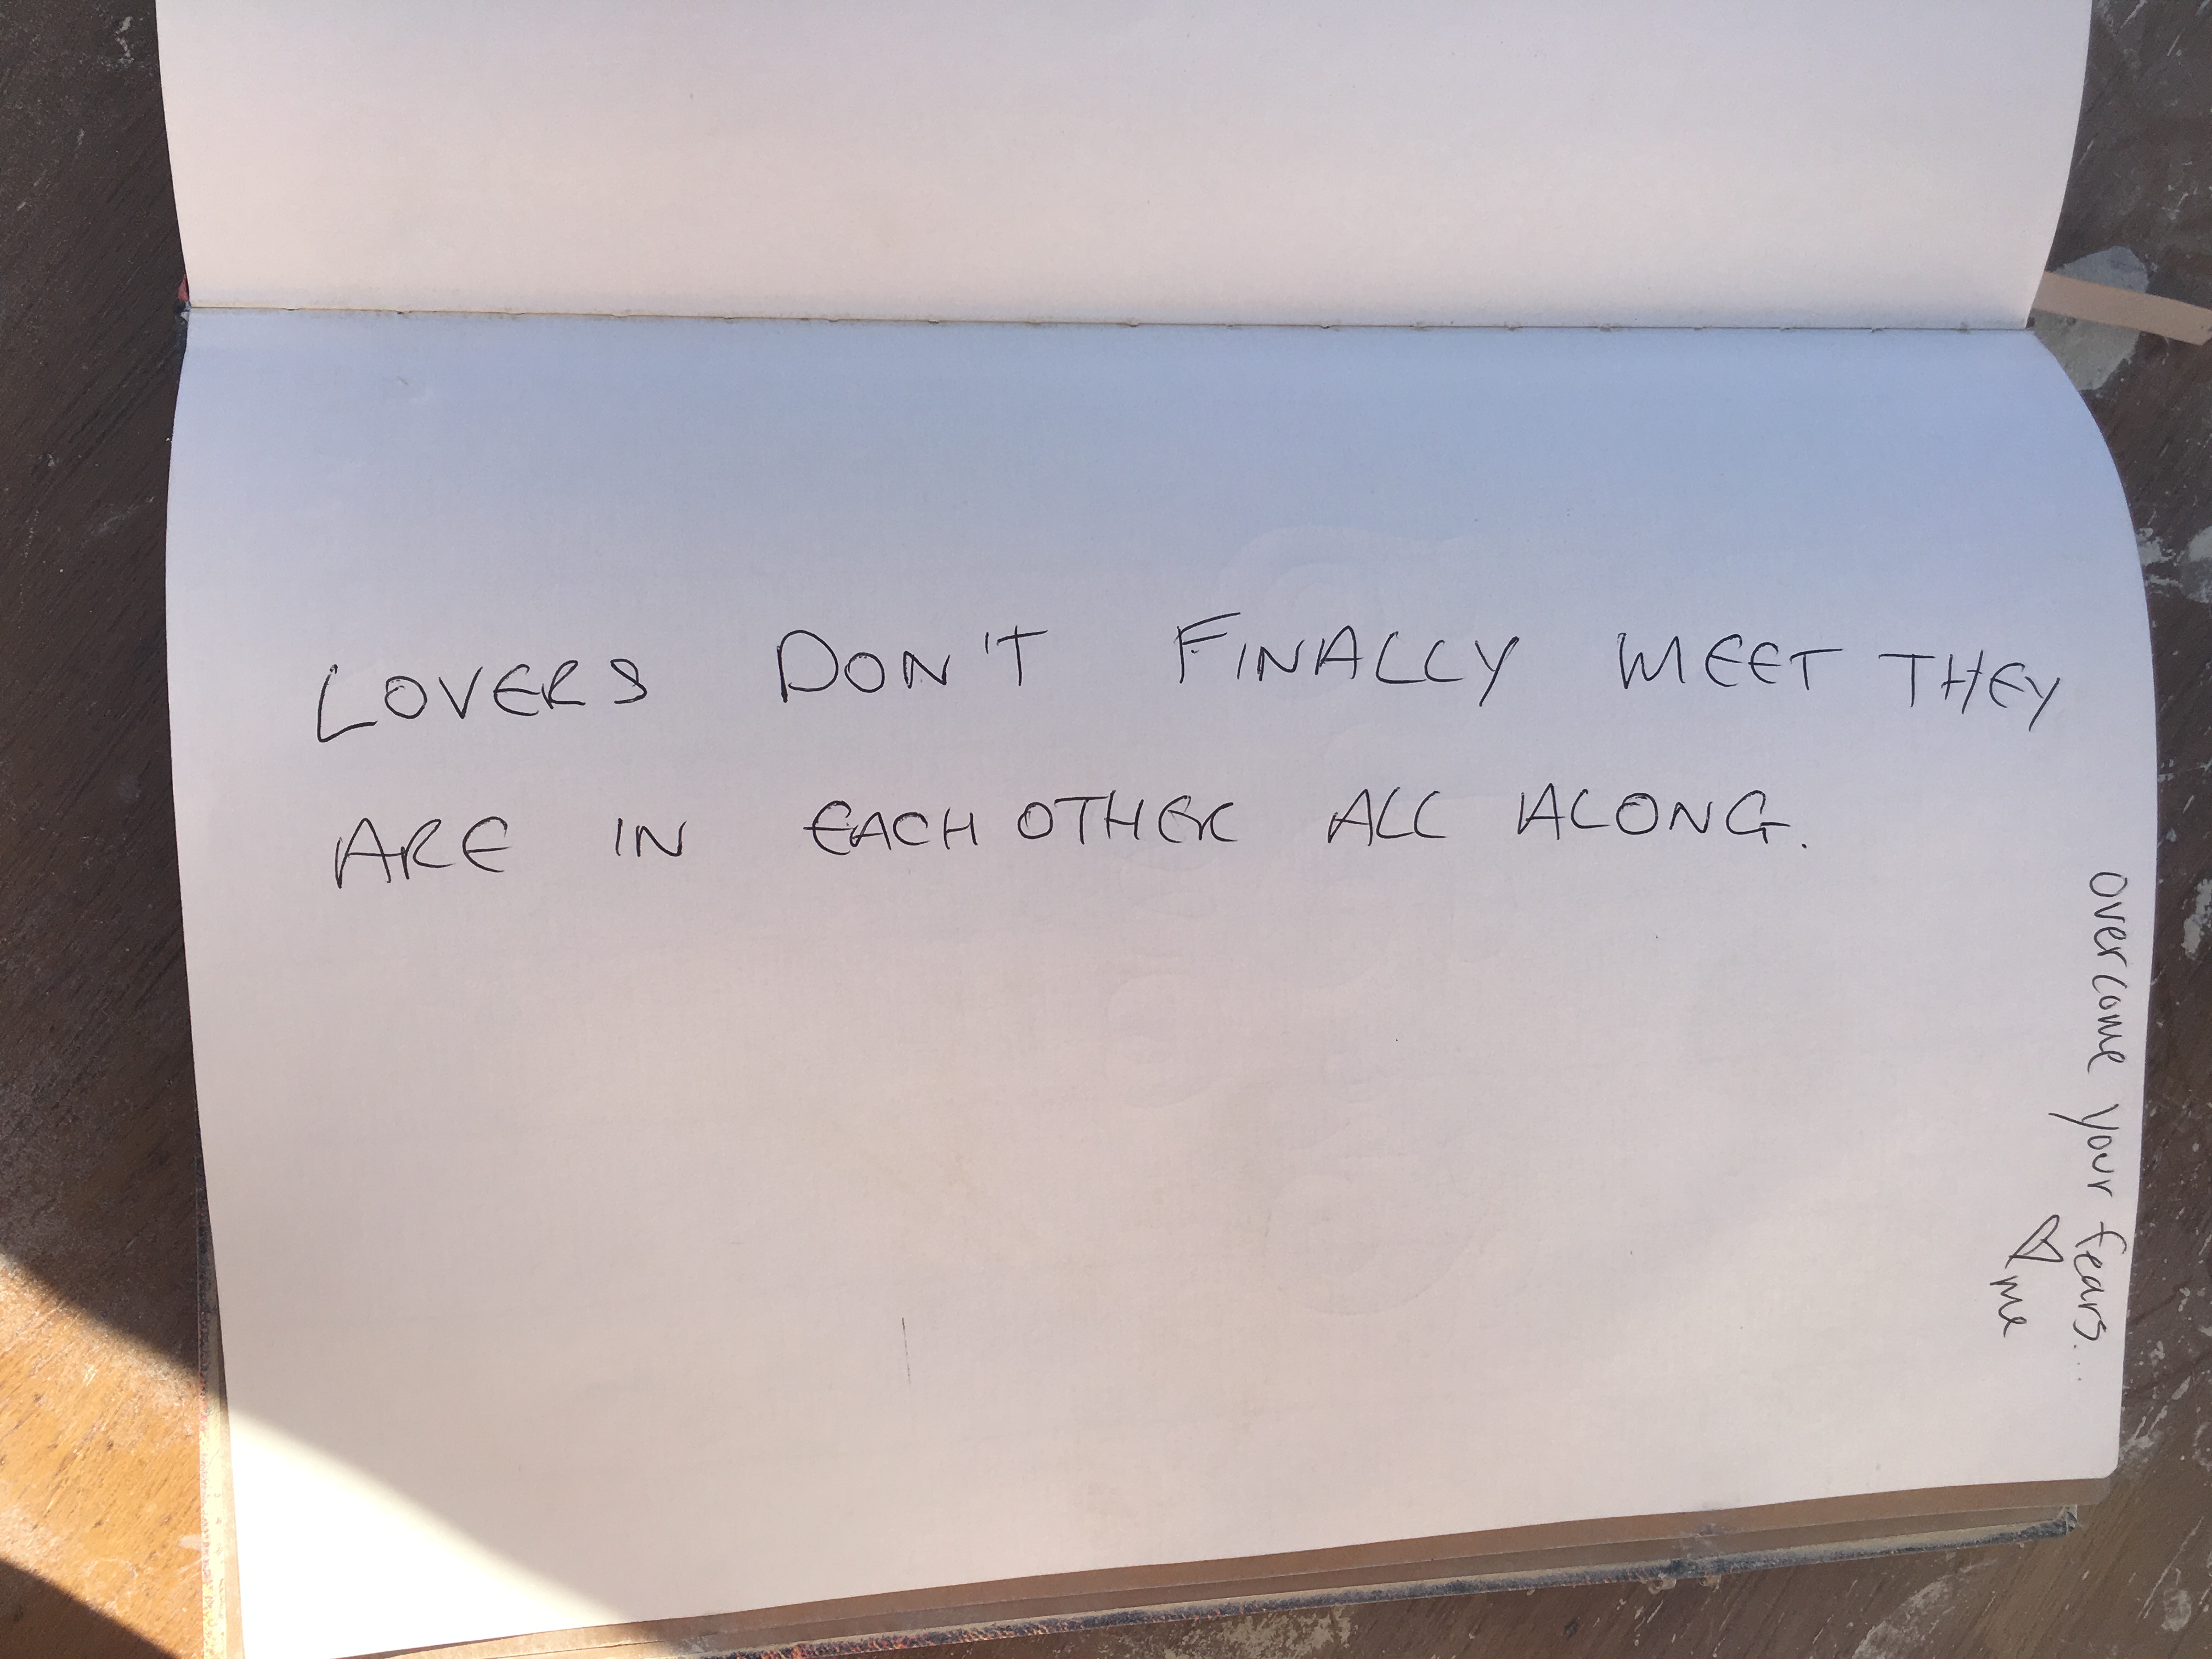 LOVERS DON'T FINALLY MEET THEY
ARE IN EACHOTHER ALL ALONG.
overcome your fears...
♡ me